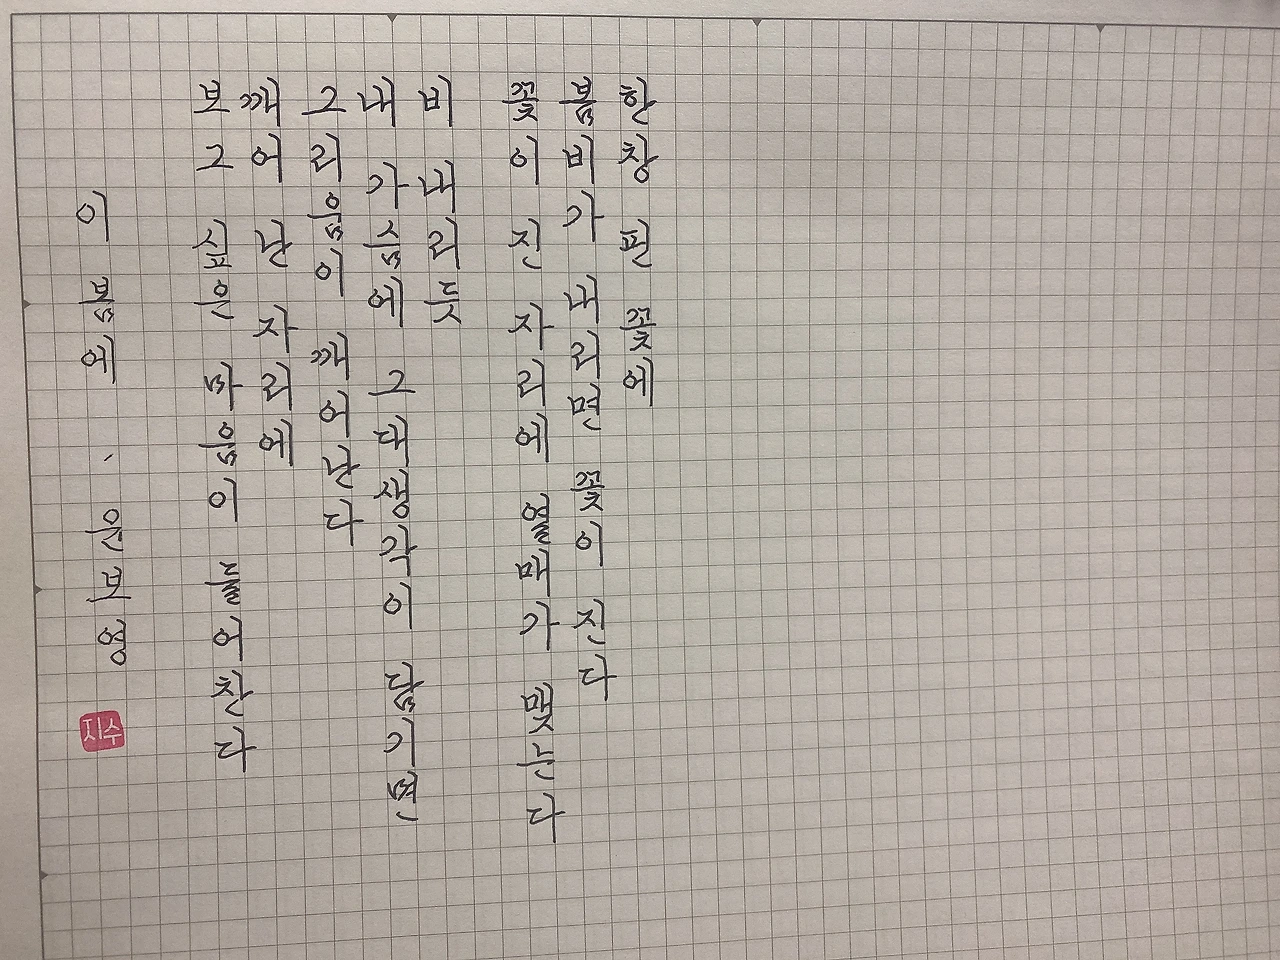 한창 핀 꽃에
봄비가 내리면 꽃이 진다
꽃이 진 자리에 열매가 맺는다
비 내리듯
내 가슴에 그대 생각이 담기면
그리움이 깨어난다
깨어난 자리에
보고 싶은 마음이 들어찬다
이 봄에 、 윤보영
지수